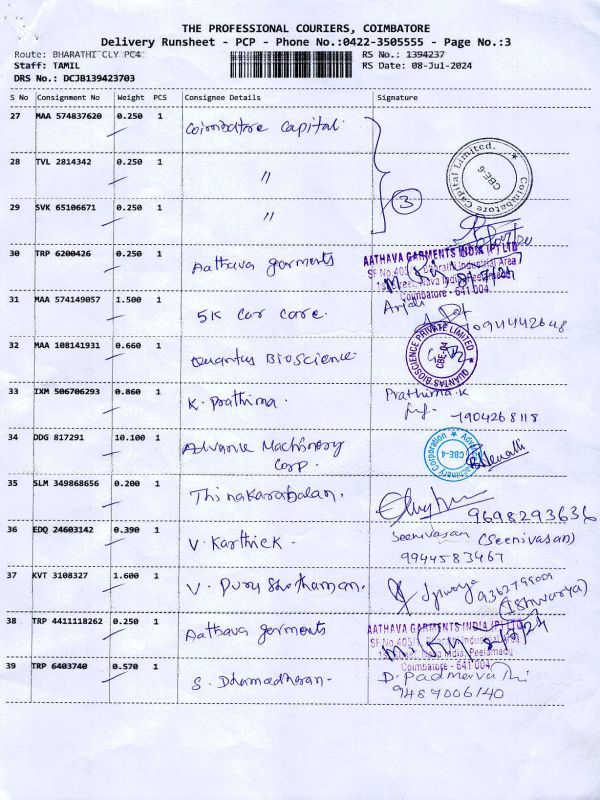 THE PROFESSIONAL COURIERS, COIMBATORE
Delivery Runsheet - PCP - Phone No.:0422-3505555 - Page No.:3
Route: BHARATHI CLY PC4
RS No.: 1394237
Staff: TAMIL
RS Date: 08-Jul-2024
DRS No.: DCJB139423703
S No Consignment No Weight PCS Consignee Details Signature
27 MAA 574837620 0.250 1 Coimbatore Capital
Coimbatore Capital Limited. CBE-6
28 TVL 2814342 0.250 1 "
3
29 SVK 65106671 0.250 1 "
30 TRP 6200426 0.250 1 Aathava garments
AATHAVA GARMENTS INDIA (P) LTD
Coimbatore - 641 004
31 MAA 574149057 1.500 1 SK Car Care.
32 MAA 108141931 0.660 1 Quantus BioScience
QUANTAS BIOSCIENCE PRIVATE LIMITED
33 IXM 506706293 0.860 1 K. Prathima. Prathima.K
7904268118
34 DDG 817291 10.100 1 Advance Machinery
Corp.
Advance Machinery Corporation CBE-4
35 SLM 349868656 0.200 1 Thinakarabalan.
9698293636
36 EDQ 24603142 0.390 1 V. Karthick. Seenivasan (Seenivasan)
9944583467
37 KVT 3108327 1.600 1 V. Purushothaman.
(Ishwarya)
38 TRP 4411118262 0.250 1 Aathava garments
AATHAVA GARMENTS INDIA (P) LTD
Coimbatore - 641 004
39 TRP 6403740 0.570 1 S. Dhamodharan. D. Padmavathi
9487006140